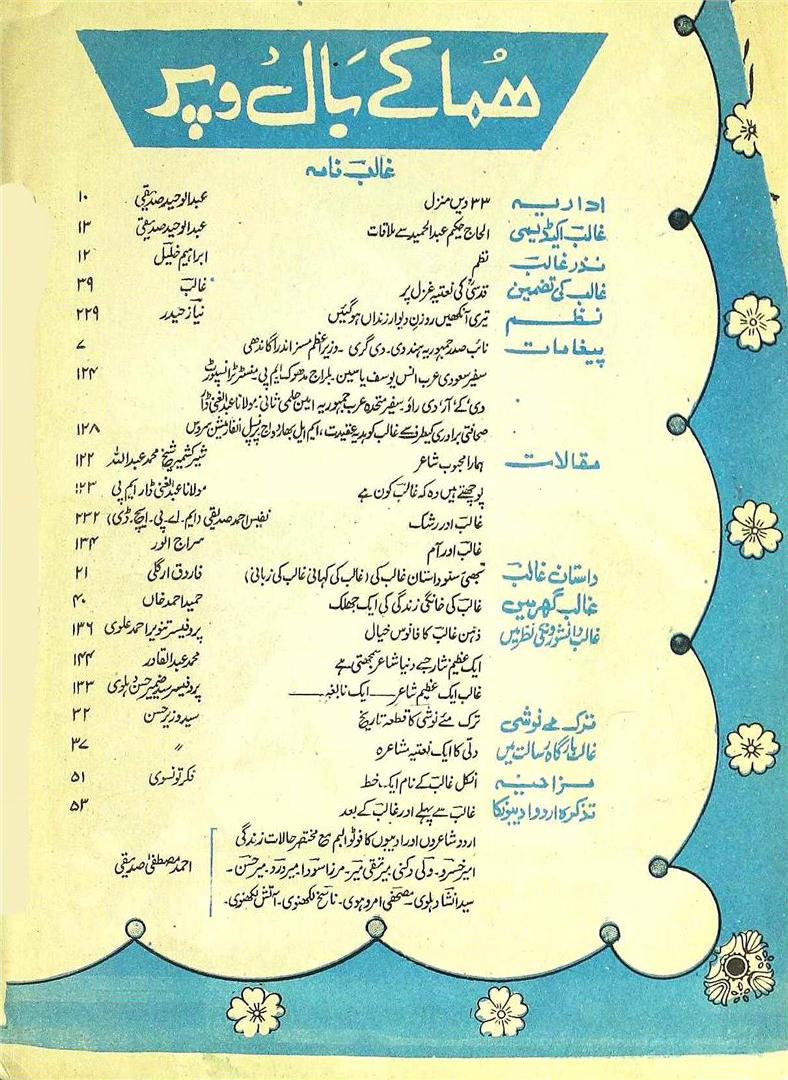 ھُما کے بَال و پَر
غالب نامہ
اداریہ ۳۳ ویں منزل عبدالوحید صدیقی ۱۰
غالب اکیڈیمی الحاج حکیم عبدالحمید سے ملاقات عبدالوحید صدیقی ۱۳
نذر غالب نظم ابراہیم خلیل ۱۲
غالب کی تضمین قدسی کی نعتیہ غزل پر غالب ۳۹
نظم تیری آنکھیں روزنِ دیوارِ زنداں ہوگئیں نیاز حیدر ۲۲۹
پیغامات نائب صدر جمہوریہ ہند وی۔ وی گری ۔ وزیر اعظم مسز اندرا گاندھی ۷
سفیر سعودی عرب انس یوسف یاسین۔ بلراج مدھوک ایم پی منسٹر ٹرانسپورٹ ۱۲۴
وی کے آر وی راؤ۔ سفیر متحدہ عرب جمہوریہ امین حلمی ثانی۔ مولانا عبدالغنی ڈار
صحافتی برادری کیطرف سے غالب کو ہدیہ عقیدت، ایم ایل بھاردواج پرنسپل انفارمیشن سروس ۱۲۸
مقالات ہمارا محبوب شاعر شیر کشمیر شیخ محمد عبداللہ ۱۲۲
پوچھتے ہیں وہ کہ غالب کون ہے مولانا عبدالغنی ڈار ایم پی ۱۲۳
غالب اور رشک نفیس احمد صدیقی (ایم۔ اے۔ پی۔ ایچ۔ ڈی) ۲۳۲
غالب اور آم سراج انور ۱۳۴
داستان غالب تجھی سے سنو داستان غالب کی (غالب کی کہانی غالب کی زبانی) فاروق ارگلی ۲۱
غالب گھر میں غالب کی خانگی زندگی کی ایک جھلک حمید احمد خاں ۴۰
غالب دانشوروں کی نظر میں ذہن غالب کا فانوس خیال پروفیسر تنویر احمد علوی ۱۳۶
ایک عظیم نثار جسے دنیا شاعر سمجھتی ہے محمد عبدالقادر ۱۴۴
غالب ایک عظیم شاعر ــــ ایک نابغہ ــــ پروفیسر سید ضمیر حسن دہلوی ۱۳۳
ترک مے نوشی ترک مئے نوشی کا قطعہ تاریخ سید وزیر حسن ۳۲
غالب بارگاہ رسالت میں دلّی کا ایک نعتیہ مشاعرہ " ۳۷
مزاحیہ انکل غالب کے نام ایک خط فکر تونسوی ۵۱
تذکرہ اردو ادیبوں کا غالب سے پہلے اور غالب کے بعد ۵۳
اردو شاعروں اور ادیبوں کا فوٹو البم مع مختصر حالات زندگی
امیر خسرو۔ ولی دکنی۔ میر تقی میر۔ مرزا سودا۔ میر درد۔ میر حسن۔ احمد مصطفیٰ صدیقی
سید انشا دہلوی۔ مصحفی امروہوی۔ ناسخ لکھنوی۔ آتش لکھنوی۔